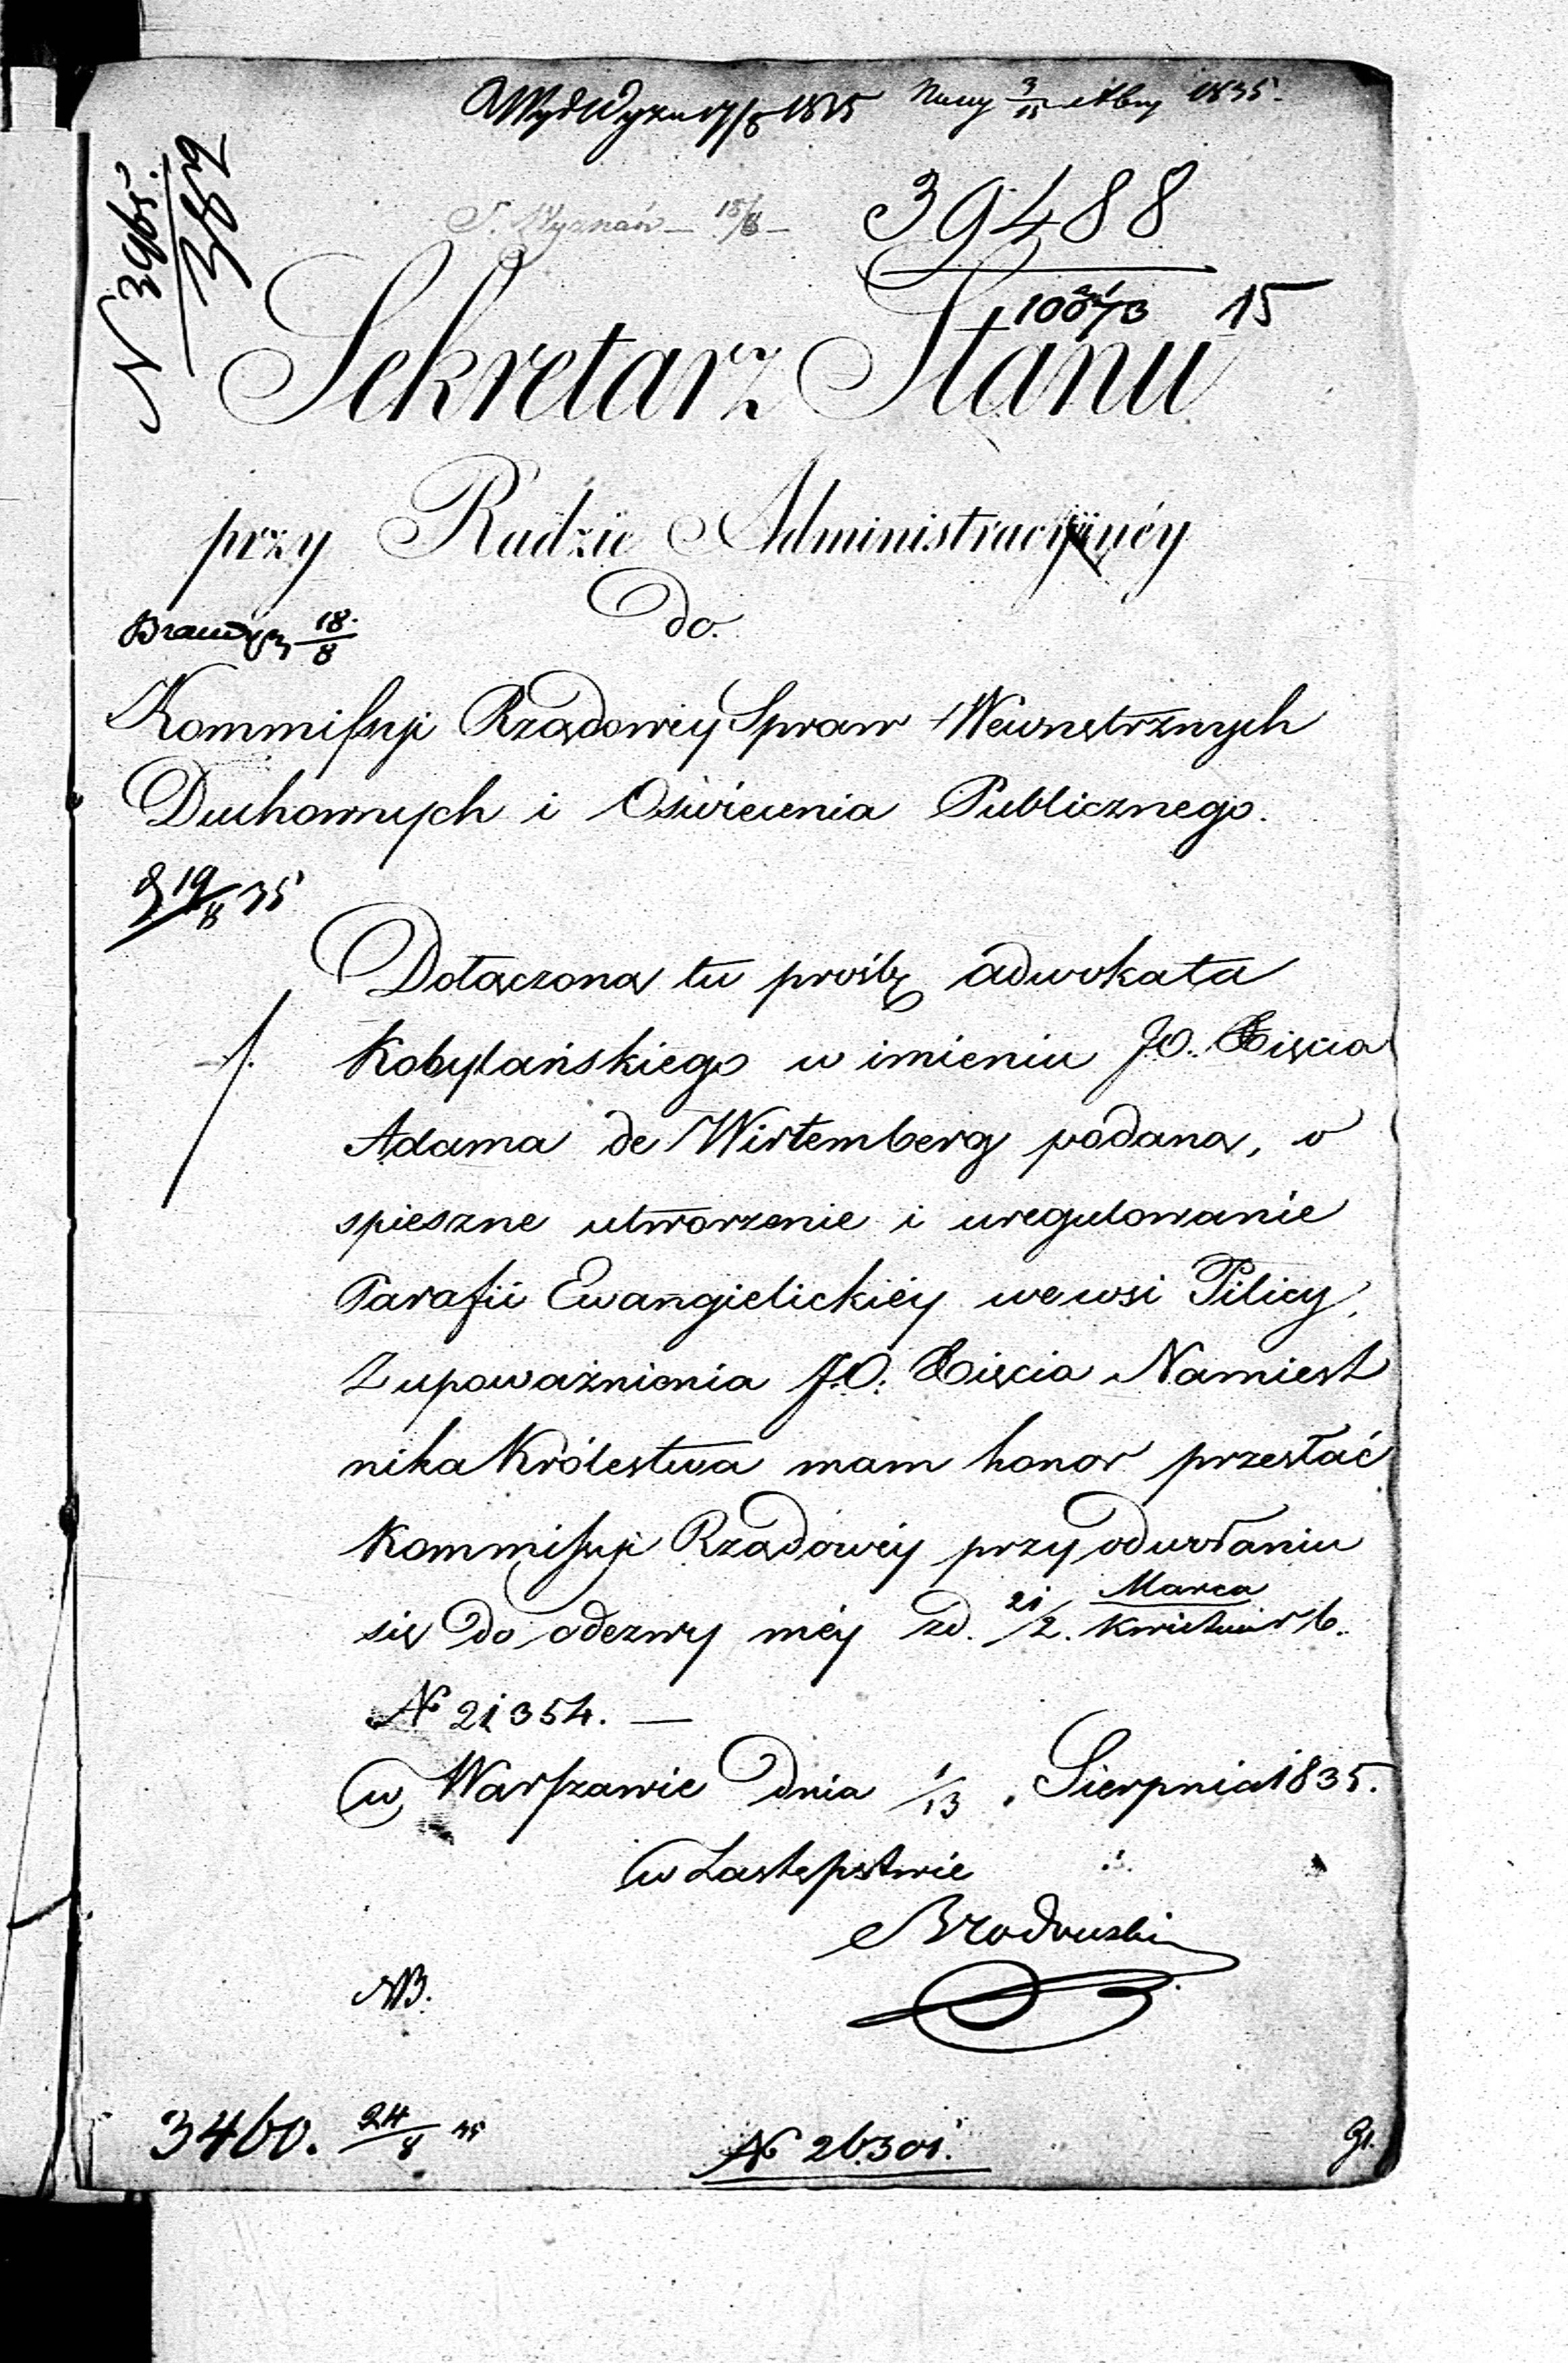 39488
15
Sekretarz Stanu
przy Radzie Administracyinéy
do.
18.
8
Kommissyi Rządowéy Spraw Wewnętrznych
Duchownych i Oświecenia Publicznego.
19/8 35
Dołączoną tu prośbę adwokata
Kobylańskiego w imieniu J.O. Xięcia
Adama de Wirtemberg podaną, o
spieszne utworzenie i uregulowanie
Parafii Ewangielickiéy we wsi Pilicy,
Z upoważnienia J.O. Xięcia Namiest
nika Królestwa mam honor przesłać
Kommissyi Rządowéy przy odwołaniu
się do odezwy méy zd. 21/2. Marca Kwietnia r b.
N 21354. —
w Warszawie dnia 1/13 Sierpnia 1835.
w Zastępstwie
Brodowski
NB.
3460. 24/8 35
N 26301.